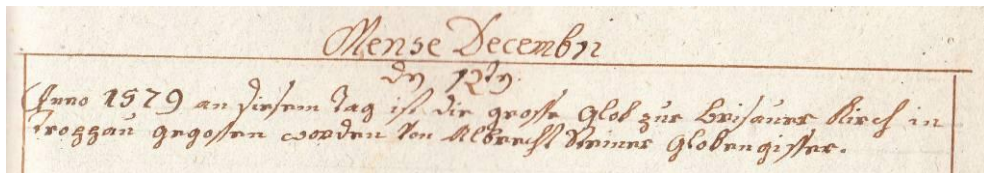 Mense Decembri
den 12ten.
Anno 1579 an diesem tag ist die grosse Glok zur Brisauer Kirch in
Troppau gegossen worden von Albrecht Steiner Glokengisser.